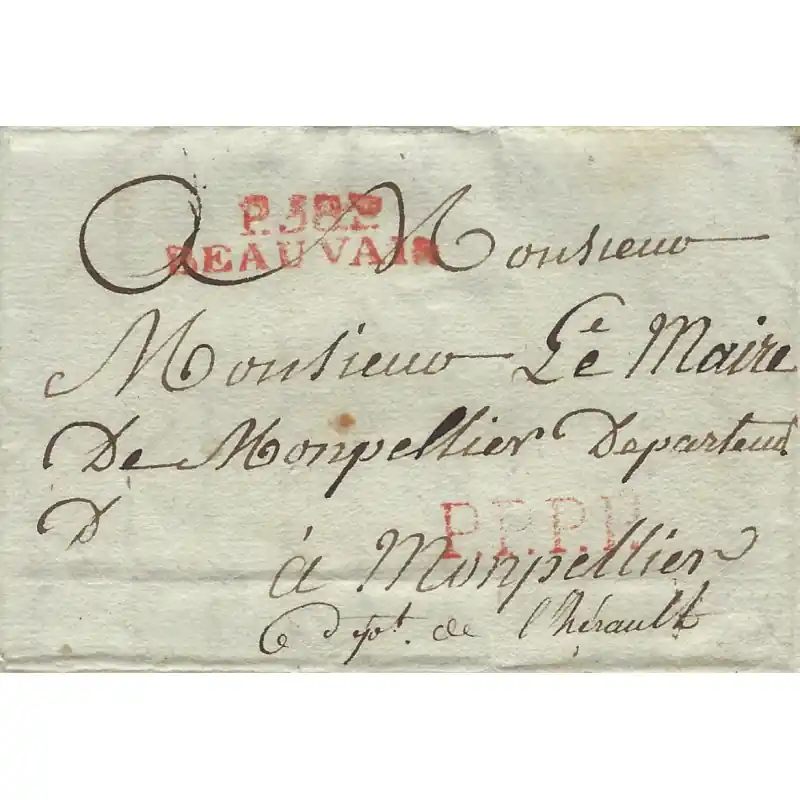 P.58.P.
BEAUVAIS
A Monsieur
Monsieur Le Maire
De Monpellier Departemt
D
P.P.P.P.
à Monpellier
Dept. de l'hérault